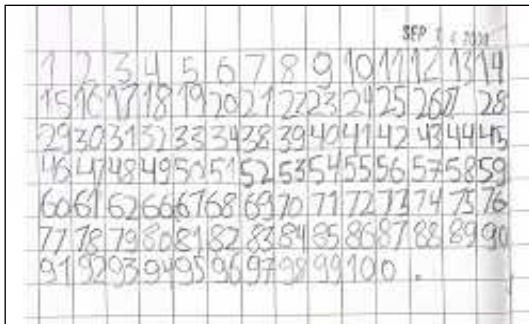 SEP
1 2 3 4 5 6 7 8 9 10 11 12 13 14
15 16 17 18 19 20 21 22 23 24 25 26 27 28
29 30 31 32 33 34 38 39 40 41 42 43 44 45
46 47 48 49 50 51 52 53 54 55 56 57 58 59
60 61 62 66 67 68 69 70 71 72 73 74 75 76
77 78 79 80 81 82 83 84 85 86 87 88 89 90
91 92 93 94 95 96 97 98 99 100 .